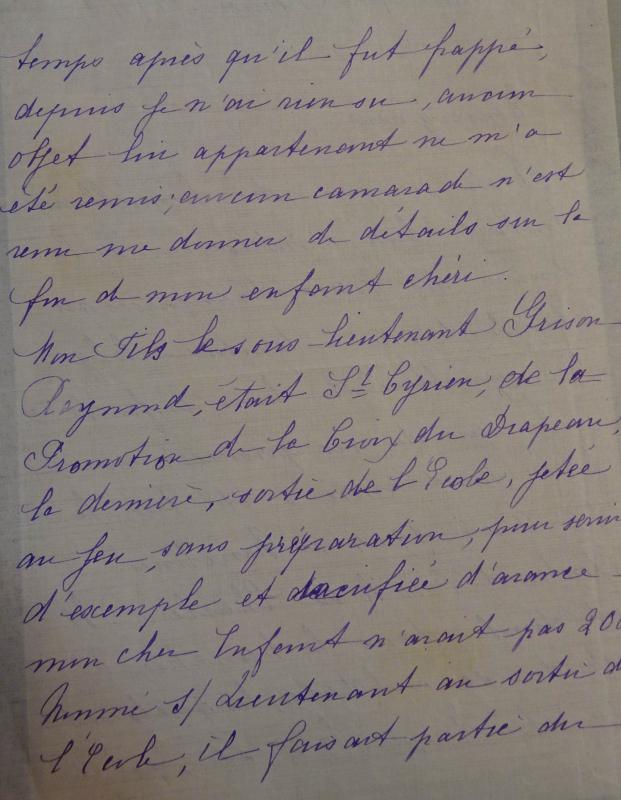 temps après qu'il fut frappé,
depuis je n'ai rien su, aucun
objet lui appartenant ne m'a
été remis; aucun camarade n'est
venu me donner de détails sur la
fin de mon enfant chéri.
Mon Fils le sous-lieutenant Grison
Raymond, était St Cyrien, de la
Promotion de la Croix du Drapeau,
la dernière, sortie de l'Ecole, jetée
au feu, sans préparation, pour servir
d'exemple et sacrifiée d'avance -
mon cher Enfant n'avait pas 20
Nommé S/ Lieutenant au sortie d
l'Ecole, il faisait partie du